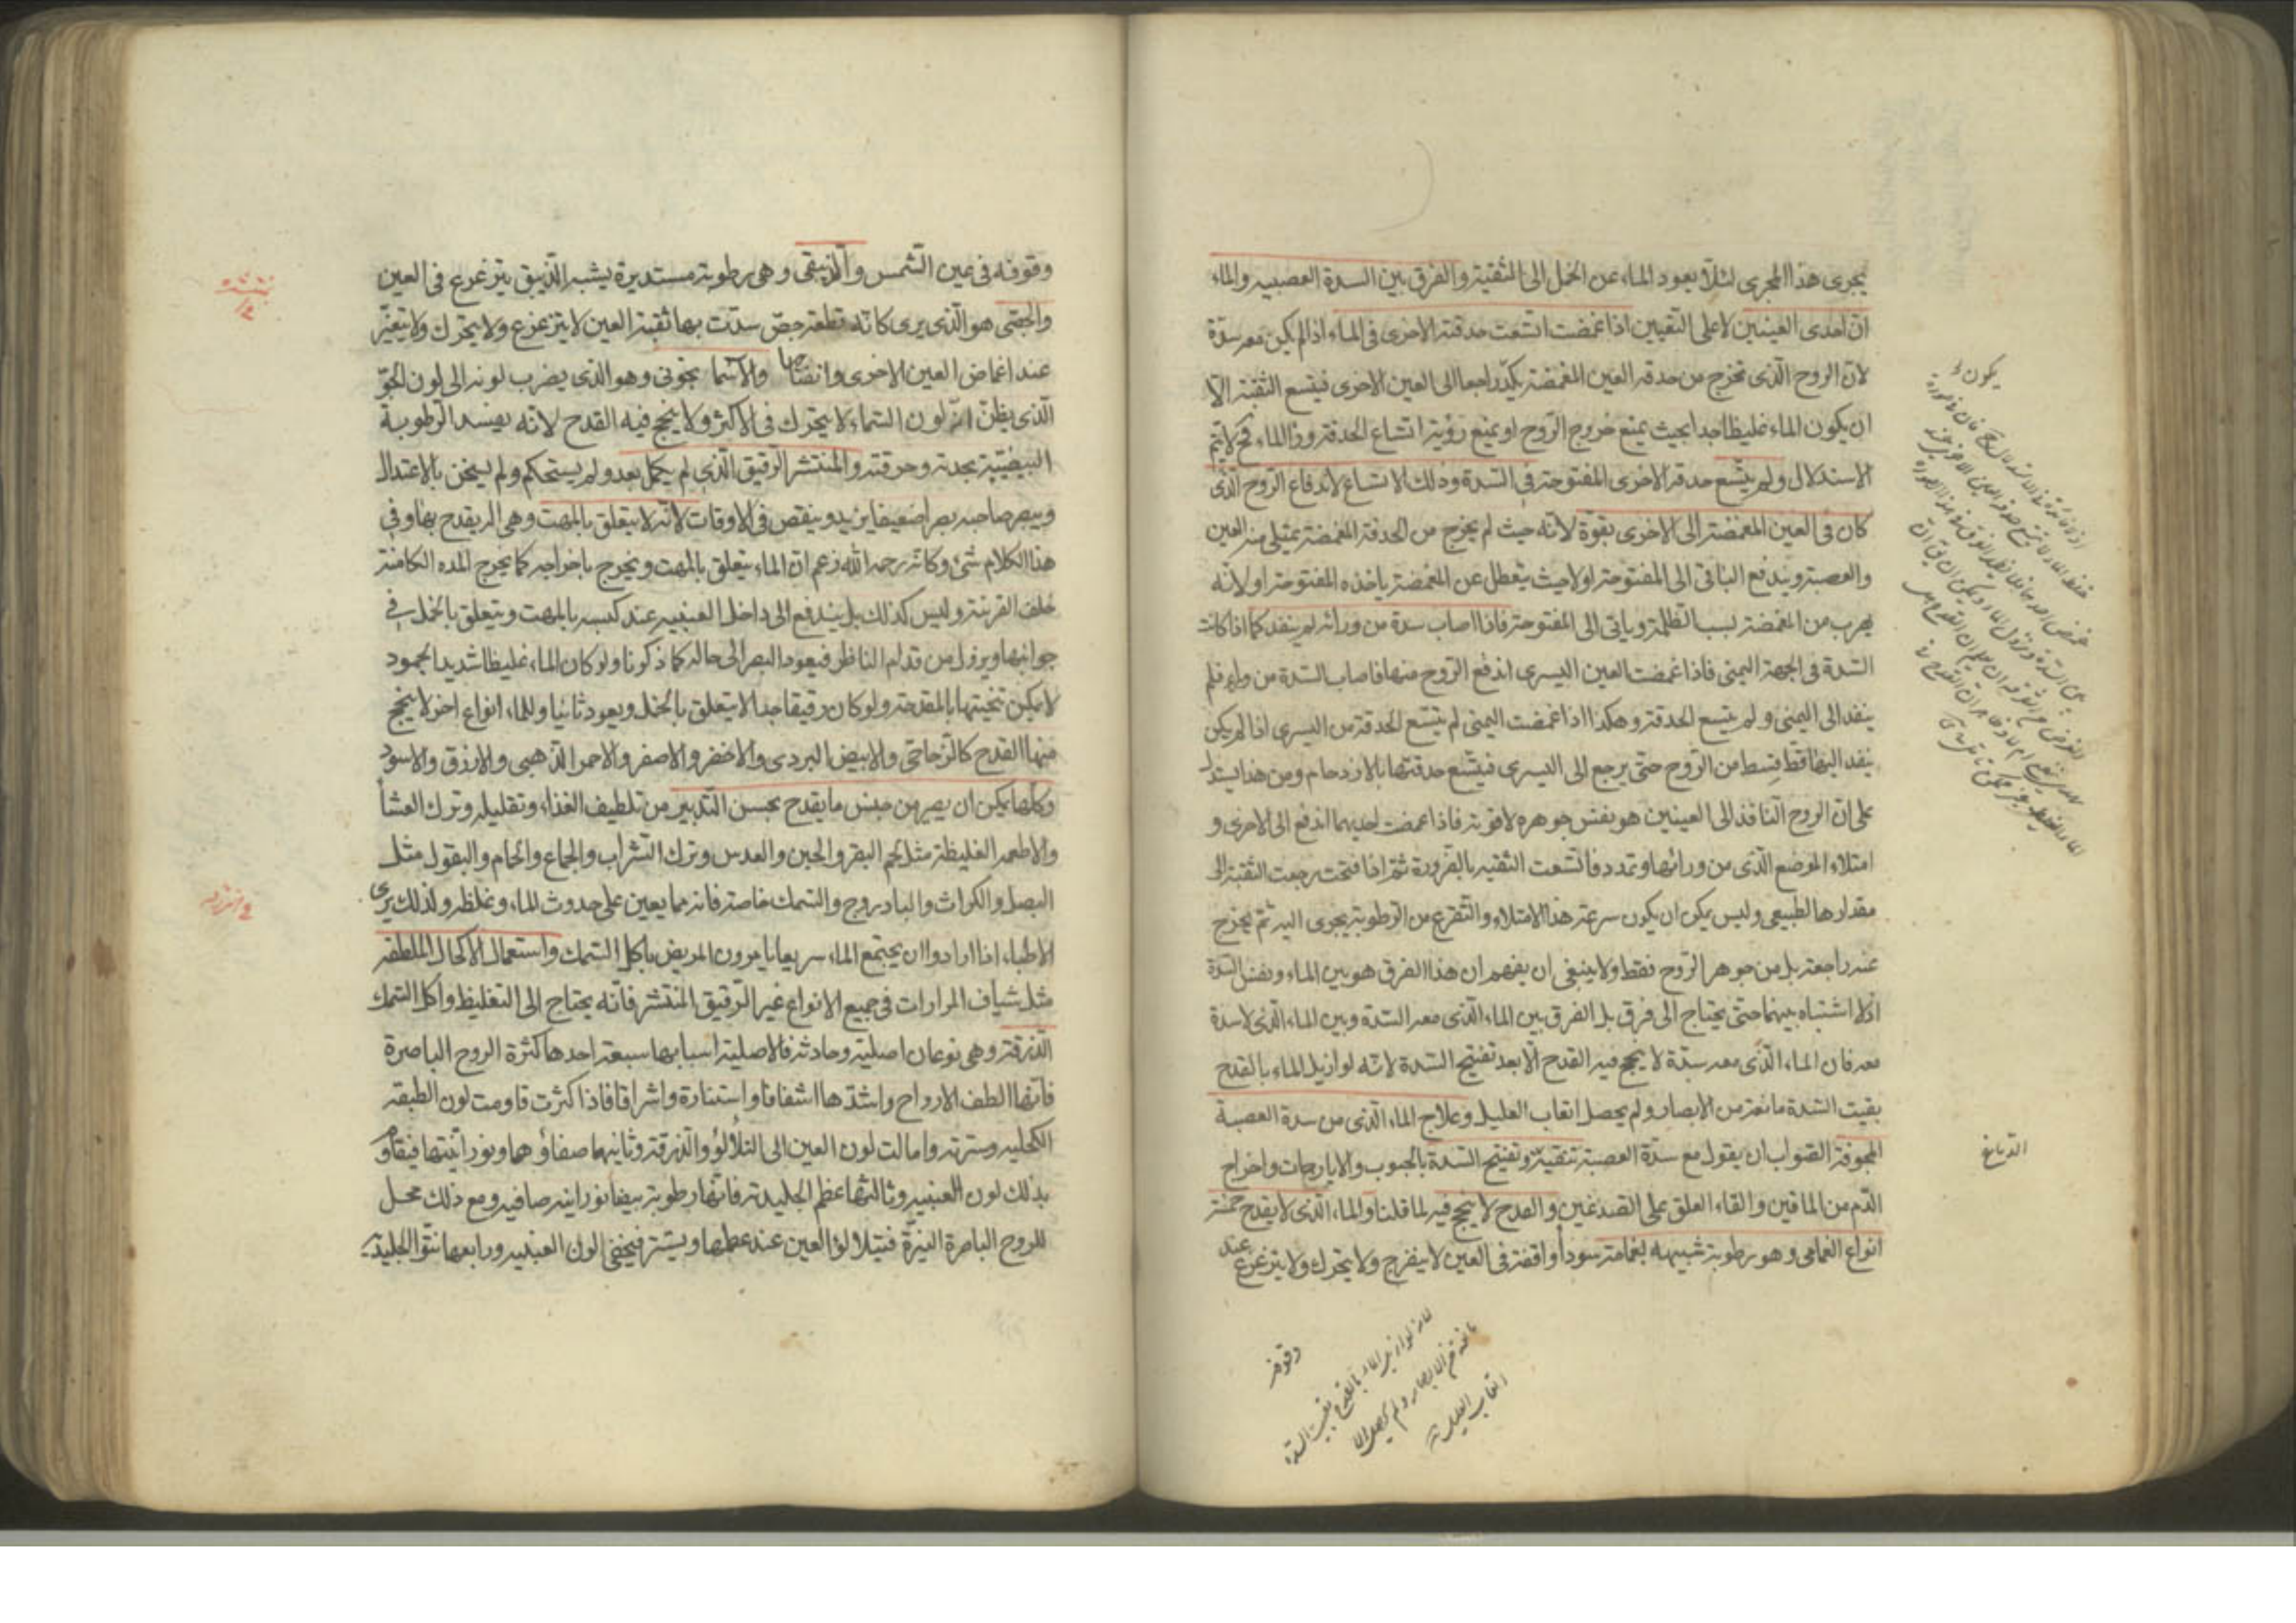 يجرى هذا المجرى لئلا يعود الماء عن الخمل الى الثقبة والفرق بين السدة العصبية والماء
ان احدى العينين لا على التعيين اذا غمضت اتسعت حدقة الاخرى فى الماء اذا لم يكن معه سدة
لان الروح الذى تخرج من حدقه العين المغمضة يكر راجعا الى العين الاخرى فيتسع الثقبة الا
ان يكون الماء غليظا جدا بحيث يمنع خروج الروح او يمنع رؤية اتساع الحدقة وراء الماء فح لا يتم
الاستدلال ولم يتسع حدقة الاخرى المفتوحة فى السدة وذلك الاتساع لاندفاع الروح الذى
كان فى العين المغمضة الى الاخرى بقوة لانه حيث لم يخرج من الحدقة المغمضة يمتلى منه العين
والعصبة ويندفع الباقى الى المفتوحة اولا حيث يتعطل عن المغمضة ياخذه المفتوحة او لانه
يهرب من المغمضة لسبب الظلمة وياتى الى المفتوحة فاذا اصاب سدة من ورائه لم ينفد كما اذا كانت
السدة فى الجهة اليمنى فاذا غمضت العين اليسرى اندفع الروح منها فاصاب السدة من وراء فلم
ينفد الى اليمنى ولم يتسع الحدقة وهكذا اذا غمضت اليمنى لم يتسع الحدقة من اليسرى اذا لم يكن
ينفد اليها قط قسط من الروح حتى يرجع الى اليسرى فيتسع حدقتها بالازدحام ومن هذا يستدل
على ان الروح النافذ الى العينين هو بنفس جوهره لا قوته فاذا غمضت احديهما اندفع الى الاخرى و
امتلاء الموضع الذى من ورائها وتمدد فاتسعت الثقبه بالضرورة ثم اذا فتحت رجعت الثقبة الى
مقدارها الطبيعى وليس يمكن ان يكون سرعة هذا الامتلاء والتفرغ من الرطوبة يجرى اليه ثم يخرج
عنه راجعة بل من جوهر الروح فقط ولا ينبغى ان يفهم ان هذا الفرق هو بين الماء ونفس السدة
اذ لا اشتباه بينهما حتى يحتاج الى فرق بل الفرق بين الماء الذى معه السدة وبين الماء الذى لا سدة
معه فان الماء الذى معه سدة لا ينجح فيه القدح الا بعد تفتيح السدة لانه لو ازيل الماء بالقدح
بقيت السدة مانعة من الابصار ولم يحصل اتعاب العليل وعلاج الماء الذى من سدة العصبة
المجوفة الصواب ان يقول مع سدة العصبة تنقية وتفتيح السدة بالحبوب والايارجات واخراج
الدم من الماقين والقاء العلق على الصدغين والقدح لا ينجح فيه لما قلنا والماء الذى لا يقدح خمسة
انواع الغمامى وهو رطوبة شبيهه بغمامة سودا واقفة فى العين لا ينفرج ولا يتحرك ولا يتزعزع عند
يكون
الدماغ
وقوفه
لانه لو ازيل الماء بالقدح بقيت السدة
مانعة من الابصار ولم يحصل الا
اتعاب العليل
وقوفه فى عين الشمس والزيبقى وهى رطوبة مستديرة يشبه الزيبق يتزعزع فى العين
والجصى هو الذى يرى كانه قطعة جص سدت بها ثقبة العين لا يتزعزع ولا يتحرك ولا يتغير
عند اغماض العين الاخرى وانفتاحها والاسما نجونى وهو الذى يضرب لونه الى لون الجو
الذى يظن انه لون السماء لا يتحرك فى الاكثر ولا ينجح فيه القدح لانه يفسد الرطوبة
البيضية بحدته وحرقته والمنتشر الرقيق الذى لم يكمل بعد ولم يستحكم ولم يسخن بالاعتدال
ويبصر صاحبه بصرا ضعيفا يزيد وينقص فى الاوقات لانه لا يتعلق بالمهت وهى الة يقدح بها وفى
هذا الكلام شئ وكانه رحمه الله زعم ان الماء يتعلق بالمهت ويخرج باخراجه كما يخرج المده الكامنة
خلف القرنية وليس كذلك بل يندفع الى داخل العنبيه عند كبسه بالمهت ويتعلق بالخمل فى
جوانبها ويزول من قدام الناظر فيعود البصر الى حاله كما ذكرنا ولو كان الماء غليظا شديد الجمود
لا يمكن تنحيتها بالمقدحة ولو كان رقيقا جدا لا يتعلق بالخمل ويعود ثانيا وللماء انواع اخر لا ينجح
فيها القدح كالزجاجى والابيض البردى والاخضر والاصفر والاحمر الذهبى والازرق والاسود
وكلها يمكن ان يصير من جنس ما يقدح بحسن التدبير من تلطيف الغذاء وتقليله وترك العشأ
والاطعمه الغليظة مثل لحم البقر والجبن والعدس وترك الشراب والجماع والحمام والبقول مثل
البصل والكراث والبادروج والسمك خاصة فانه مما يعين على حدوث الماء وغلظه ولذلك يرى
الاطباء اذا ارادوا ان يجتمع الماء سريعا يامرون المريض باكل السمك واستعمال الاكحال الملطفه
مثل شياف المرارات فى جميع الانواع غير الرقيق المنتشر فانه يحتاج الى التغليظ واكل السمك
الزرقة وهى نوعان اصلية وحادثة فالاصلية اسبابها سبعة احدها كثرة الروح الباصرة
فانها الطف الارواح واشدها اشفافا واستنارة واشراقا فاذا كثرت قاومت لون الطبقه
الكحليه وسترته وامالت لون العين الى التلألؤ والزرقة وثانيها صفاؤها ونورانيتها فيقاوم
بذلك لون العنبيه وثالثها عظم الجليدية فانها رطوبة بيضا نورانيه صافيه ومع ذلك محل
للروح الباصرة النيرة فيتلالؤ العين عند عظمها ويستر فيخفى لون العنبيه ورابعها نتو الجليدية